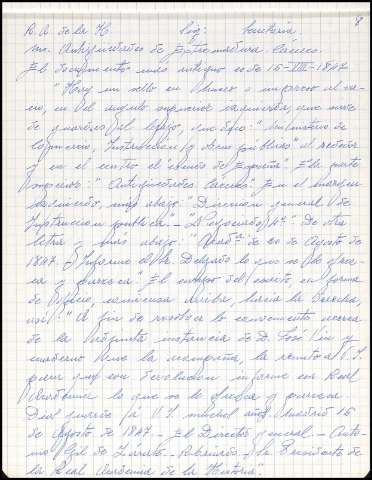 8
R. A. de la H. Sig: Santería,
ms. Antigüedades de Extremadura. Cáceres.
El documento más antiguo es de 16-VIII-1847
Hay un sello en blanco e impreso al va-
en el ángulo superior
de del que dice: "Ministerio de
Comercio, Instrucción y Obras públicas" al rectora
y en el centro el "de España". En la parte
"Antigüedades. Cáceres. En el margen
más abajo: "Dirección general de
Instrucción pública" - "Negociado 4º. De otra
letra y más abajo: de 20 de Agosto de
1847. Informe el Sr. Delgado lo que se le ofrez-
ca y parezca". El del escrito, en forma
de Oficio, comienza arriba, hacia la derecha,
así: "A fin de resolver lo conveniente acerca
de la adjunta instancia de D. José y
cuaderno que la acompaña, la remito a V. S.
para que con devolución informe esa Real
Academia lo que se le ofrezca y parezca.
Dios guarde a V. S. muchos años. Madrid 16
de Agosto de 1847. - El Director general - Anto-
nio Gil de Zárate - Rubricado - Sr. Presidente de
la Real Academia de la Historia".